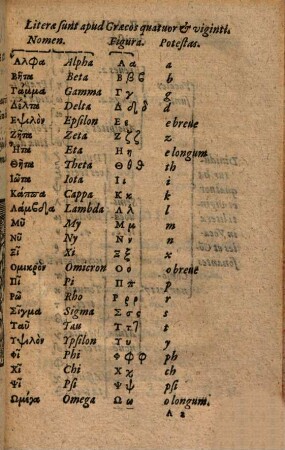 Literæ sunt apud Græcos quatuor & viginti.
Nomen. Figura. Potestas.
Αλφα Alpha Α α a
Βῆτα Beta Β β ϐ b
Γάμμα Gamma Γ γ g
Δέλτα Delta Δ δ d
Εψιλὸν Epsilon Ε ε e breve
Ζῆτα Zeta Ζ ζ z
Ητα Eta Η η e longum
Θῆτα Theta Θ θ ϑ th
Ιῶτα Iota Ι ι i
Κάππα Cappa Κ κ k
Λάμβδα Lambda Λ λ l
Μῦ My Μ μ m
Νῦ Ny Ν ν n
Ξῖ Xi Ξ ξ x
Ομικρὸν Omicron Ο ο o breve
Πῖ Pi Π π p
Ρῶ Rho Ρ ρ r
Σίγμα Sigma Σ σ ς s
Ταῦ Tau Τ τ t
Υψιλὸν Ypsilon Υ υ y
Φῖ Phi Φ φ ph
Χῖ Chi Χ χ ch
Ψῖ Psi Ψ ψ psi
Ωμέγα Omega Ω ω o longum.
A 2